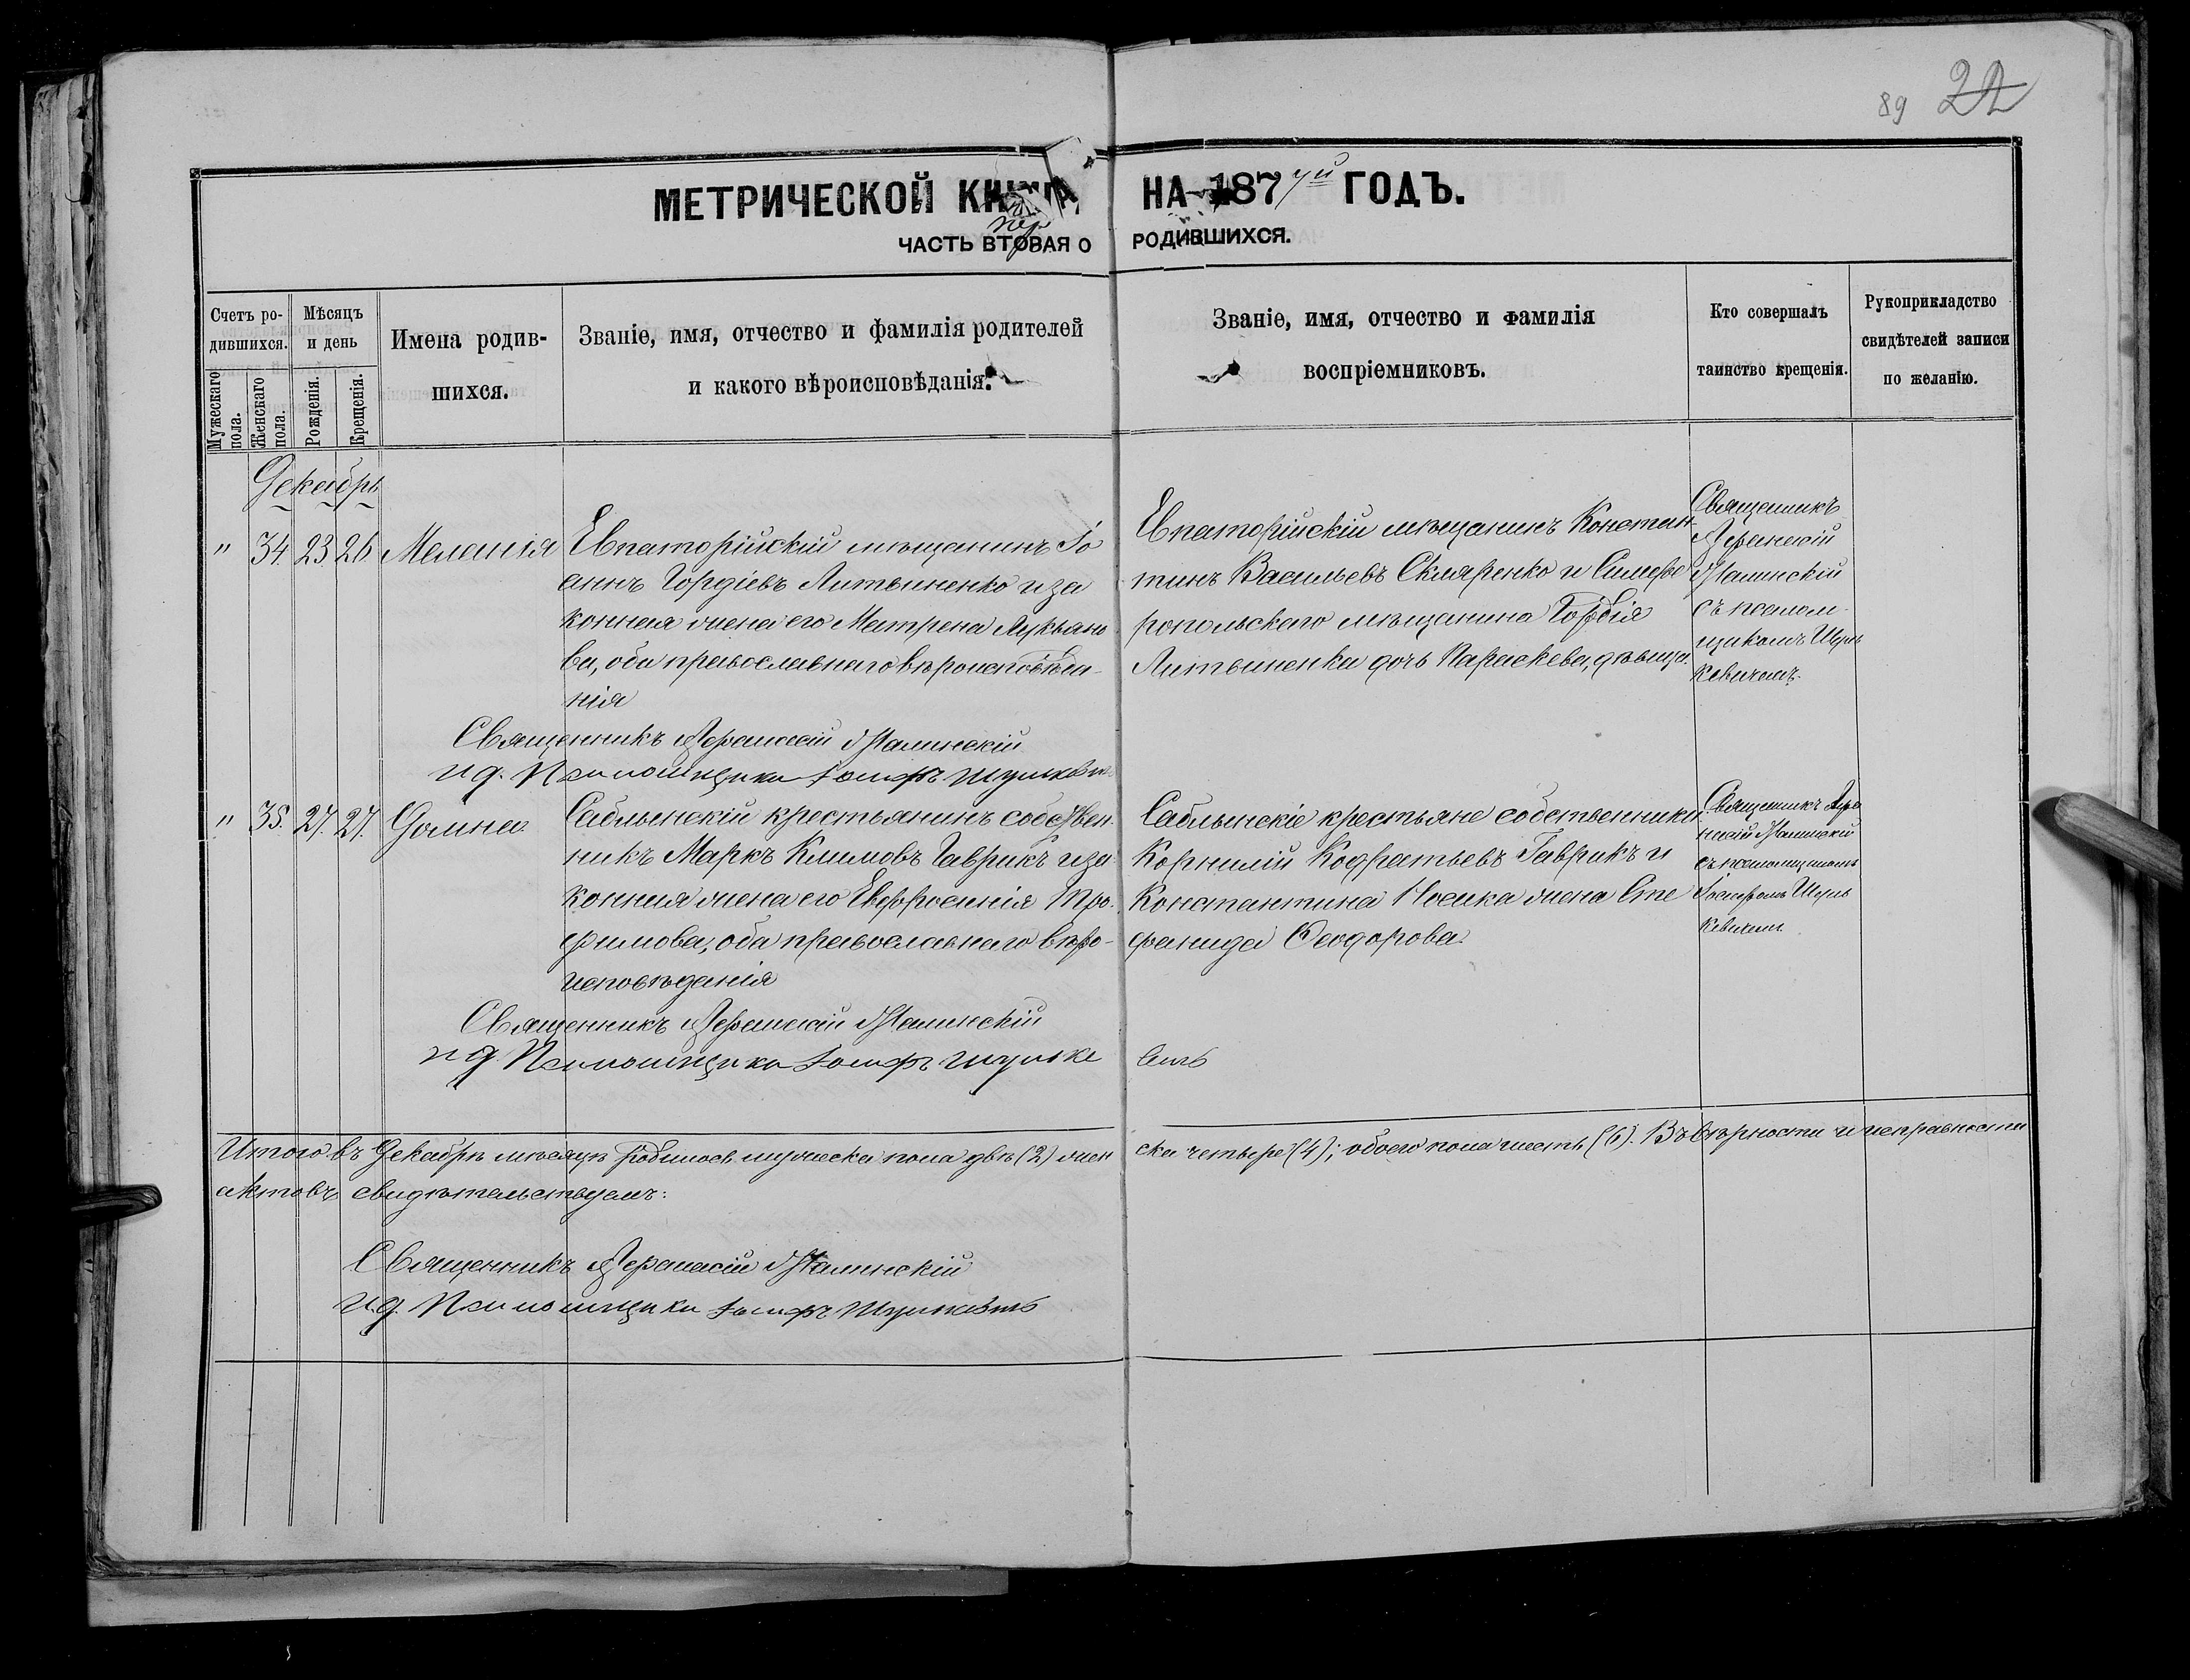 89 22
МЕТРИЧЕСКОЙ КНИГИ НА 187 ГОДЪ.
пер
ЧАСТЬ ВТОРАЯ О РОДИВШИХСЯ.
Счетъ ро-
дившихся.
Мужескаго пола.
Женскаго пола.
Мѣсяцъ
и день
Рожденія.
Крещенія.
Имена родив-
шихся.
Званіе, имя, отчество и фамилія родителей
и какого вѣроисповѣданія.
Званіе, имя, отчество и фамилія
воспріемниковъ.
Кто совершалъ
таинство крещенія.
Рукоприкладство
свидѣтелей записи
по желанію.
Декабрь
" 34. 23. 26. Меланія
Евпаторійскій мѣщанинъ Іо
аннъ Гордіевъ Литвиненко и за
конная жена его Матрена Лукьяно
ва, оба православнаго вѣроисповѣда-
нія
Евпаторійскій мѣщанинъ Констан-
тинъ Васильевъ Скляренко и Симфе
ропольскаго мѣщанина Гордія
Литвиненка дочь Параскева, дѣвица.
Священникъ
Афанасій
Налинскій
съ псалом-
щикомъ Шуль
кевичемъ.
Священникъ Афанасій Налинскій
и д. Псаломщика Іосифъ Шулькевичъ
" 35. 27. 27. Домна
Саблынскій крестьянинъ собствен-
никъ Маркъ Климовъ Гаврикъ и за
конная жена его Евфросинія Тро-
фимова, оба православнаго вѣро-
исповѣданія
Саблынскіе крестьяне собственники
Корнилій Кодратьевъ Гаврикъ и
Константина Носика жена Сте
фанида Ѳеодорова.
Священникъ Афа
насій Налинскій
съ псаломщикомъ
Іосифомъ Шуль
кевичемъ
Священникъ Афанасій Налинскій
и д. Псаломщика Іосифъ Шульке вичъ
Итого въ Декабрѣ мѣсяцѣ родилось мужеска пола двѣ (2) жен ска четыре (4); обоего пола шесть (6). Въ вѣрности и исправности
актовъ свидѣтельствуемъ:
Священникъ Афанасій Налинскій
и.д. Псаломщика Іосифъ Шулькевичъ